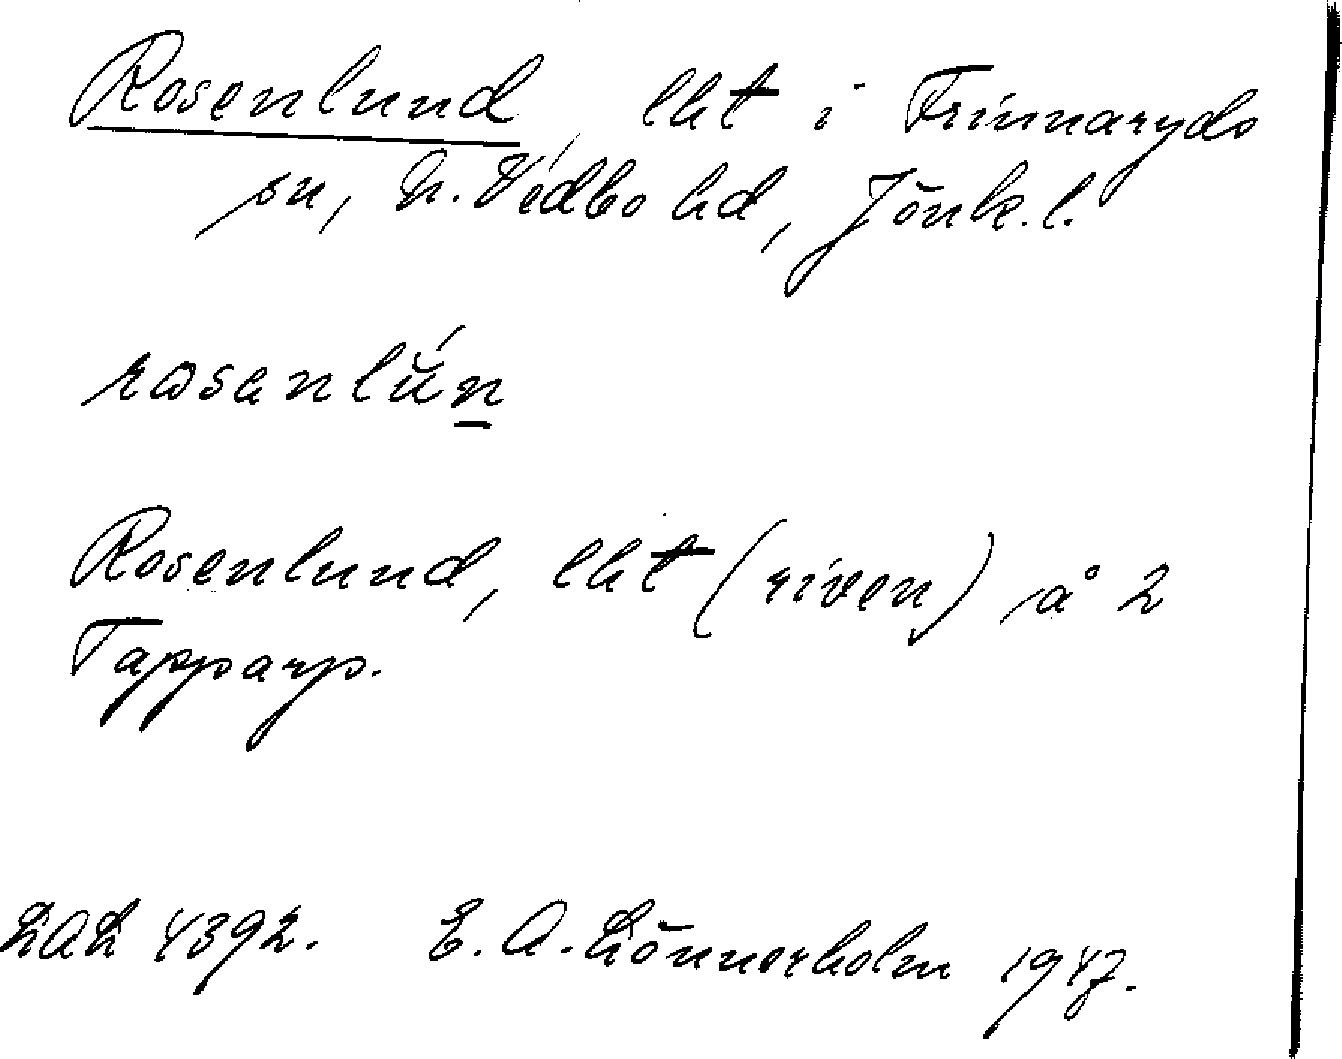 Rosenlund, lht i Frinnaryds
sn, N. Vedbo hd, Jönk. l.
rosanlŭ́n̲
Rosenlund, lht (riven) å 2
Tapparp.
LAL 4392. E. A. Lönnerholm 1947.